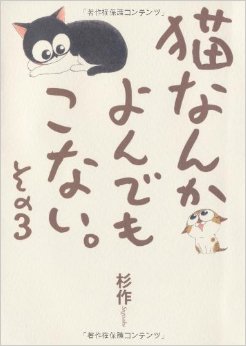 「著作権保護コンテンツ」
猫なんか
よんでも
こない。
その3
杉作
Sugisaku
「著作権保護コンテンツ」